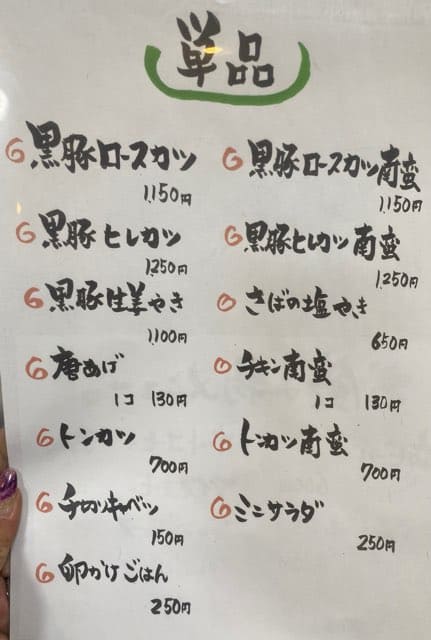 単品
黒豚ロースカツ
1,150円
黒豚ヒレカツ
1,250円
黒豚生姜やき
1,100円
唐あげ
1コ 130円
トンカツ
700円
千切りキャベツ
150円
卵かけごはん
250円
黒豚ロースカツ南蛮
1,150円
黒豚ヒレカツ南蛮
1,250円
さばの塩やき
650円
チキン南蛮
1コ 130円
トンカツ南蛮
700円
ミニサラダ
250円